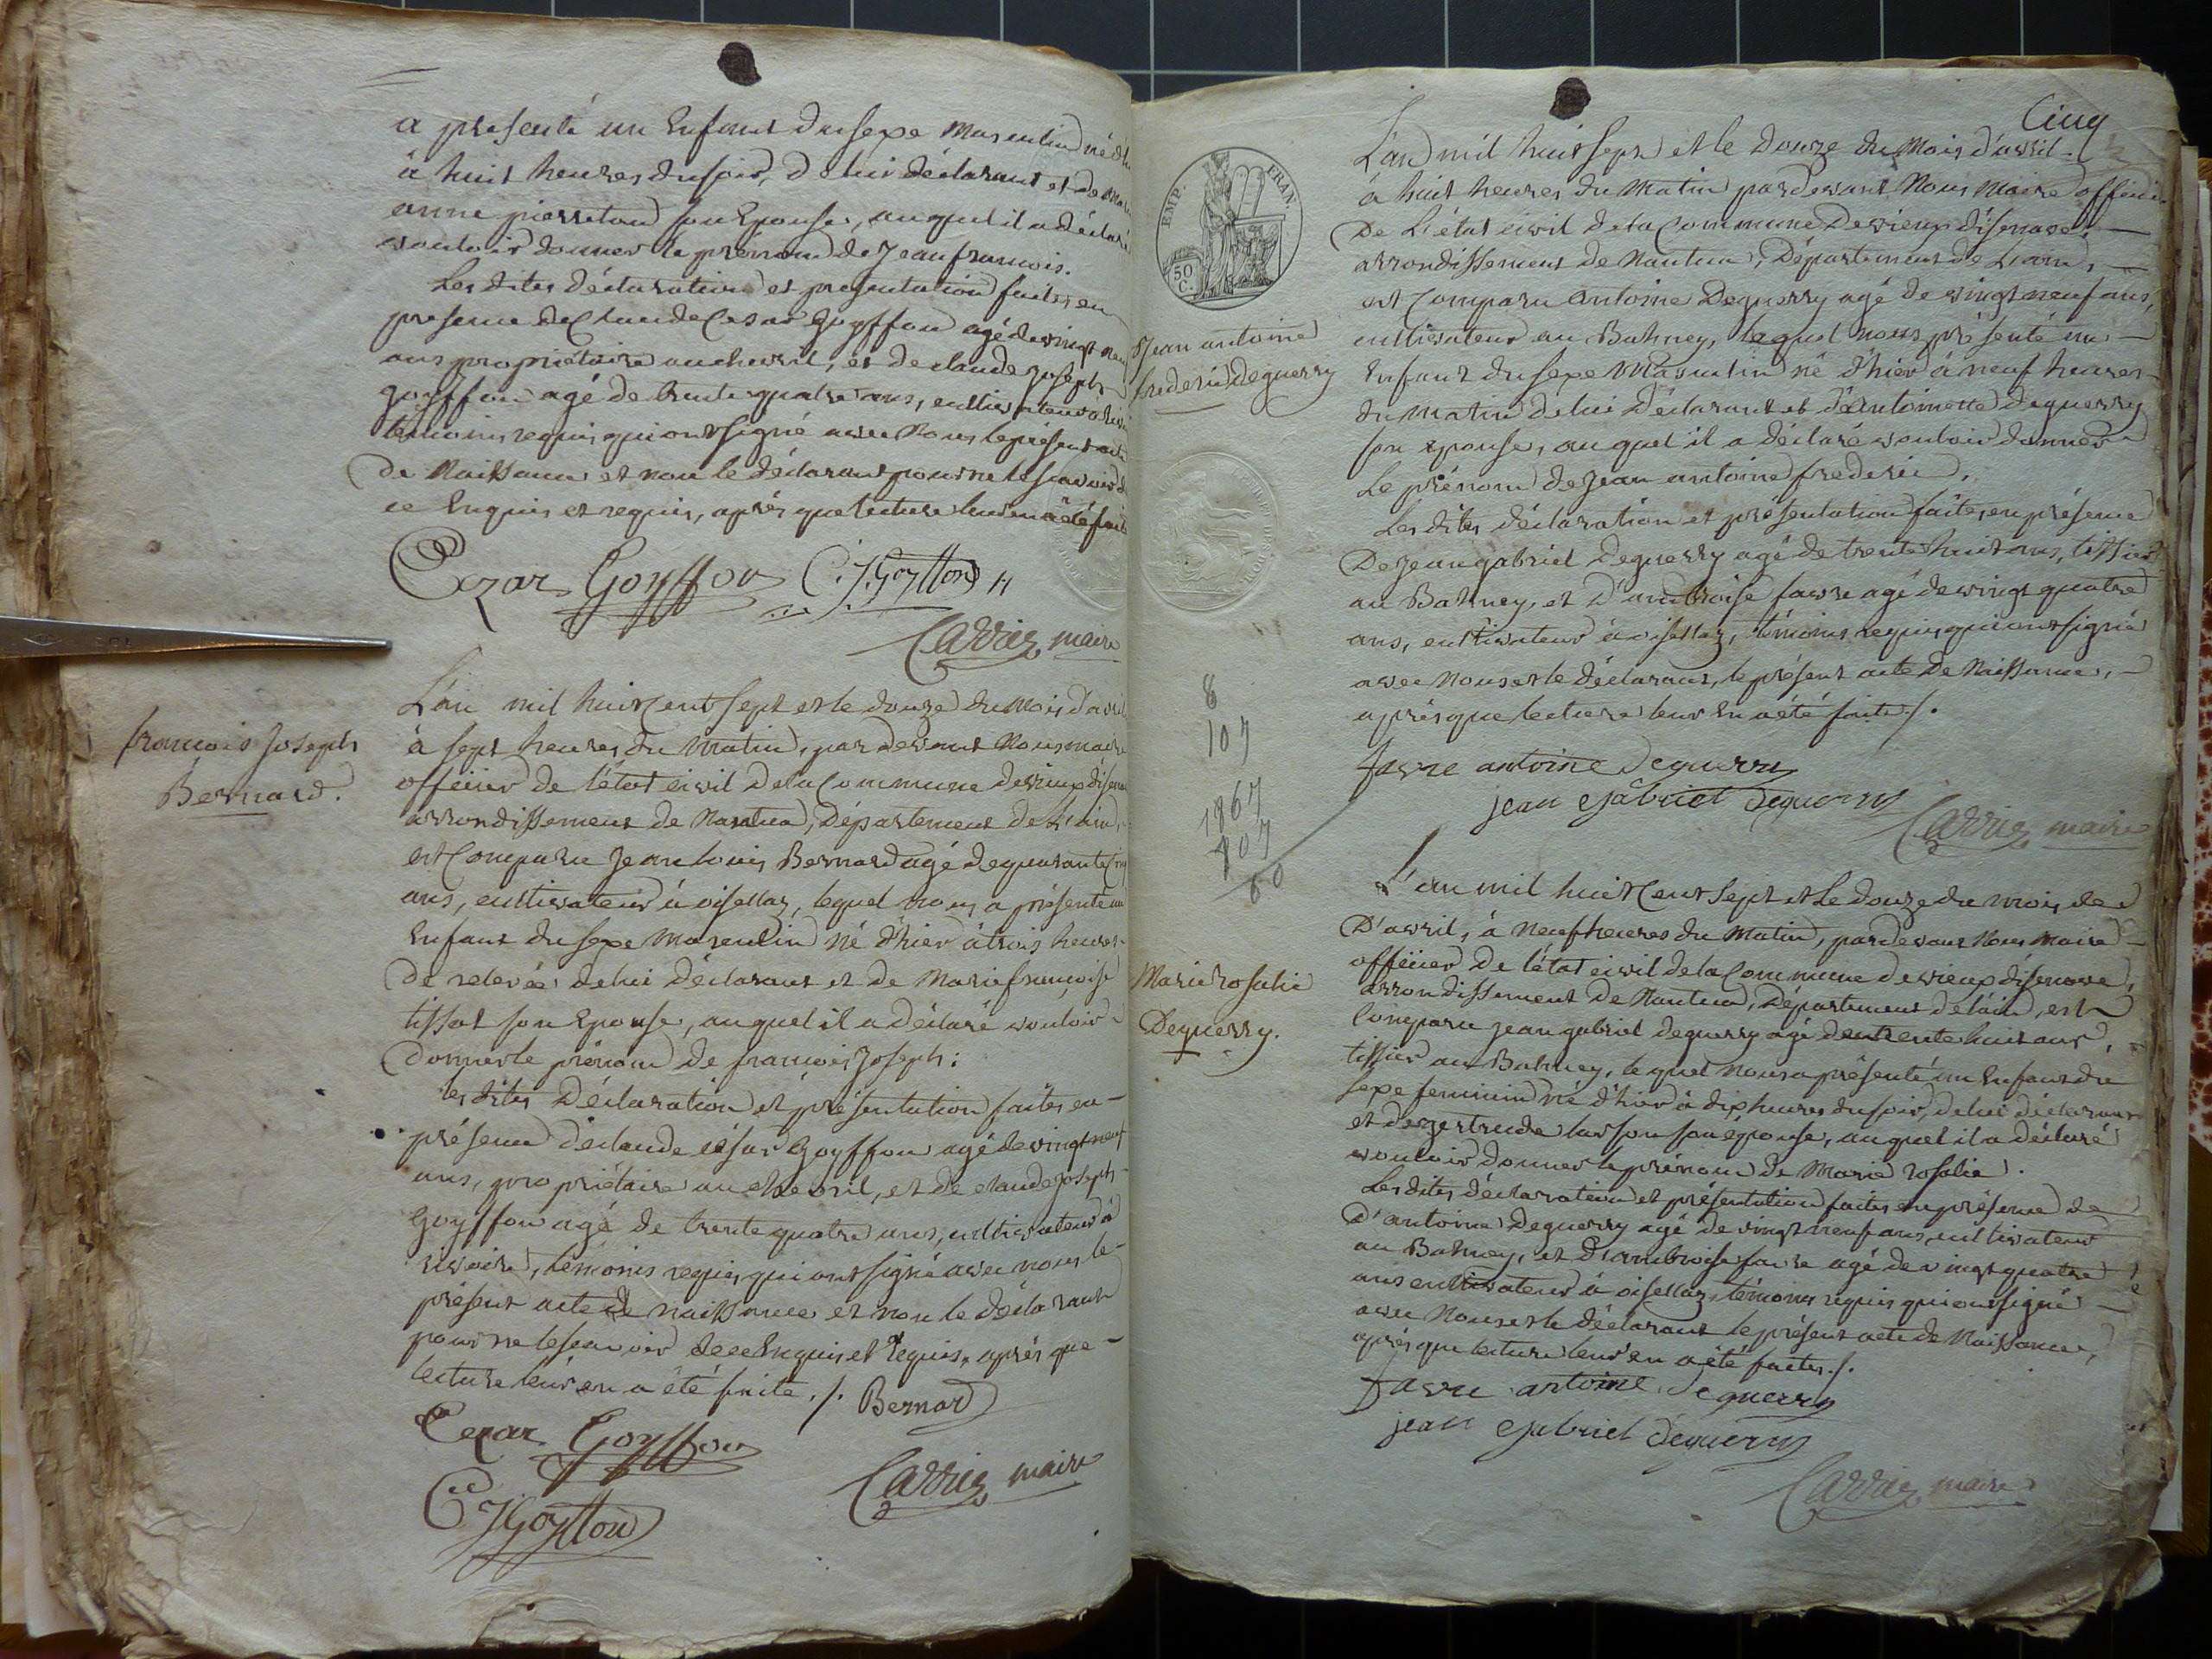 a presenté un Enfant du sexe Masculin né d'hi
à huit heures du soir, de lui déclarant et de marie
anne pierretond son Epouse, auquel il a déclaré
vouloir donner le prénom de Jean francois.
Les dites déclaration et presentation faites en
presence de Claude Cesar Goyffon agé de vingt neuf
ans proprietaire au chevril, et de claude Joseph
goyffon agé de trente quatre ans, cultivateur à
temoins requis qui ont signé avec Nous le présent acte
de Naissance et non le déclarant pour ne le scavoir de
ce Enquis et requis, après que lecture leur en a été faite
Cezar Goyffon C. J. Goyffon
Carrier maire
francois Joseph
Bernard.
L'an mil huit Cent Sept et le douze du Mois d'avril
à sept heures du Matin, par devant Nous maire
officier de l'état civil de la Commune de vieux disenave
arrondissement de Nantua, Département de L'ain,
est Comparu Jean louis Bernard agé de quarante cinq
ans, cultivateur à oisellaz, lequel nous a présenté un
Enfant du sexe Masculin né d'hier à trois heures
de relevée de lui déclarant et de Marie francoise
tissot son Epouse, auquel il a déclaré vouloir
donner le prénom de francois Joseph:
les dites Déclaration et présentation faites en
présence de claude césar Goyffon agé de vingt neuf
ans, propriétaire au chevril, et de claude Joseph
Goyffon agé de trente quatre ans, cultivateur à
rivoire, témoins requis qui ont signé avec nous le
présent acte de naissance et non le déclarant
pour ne le scavoir de ce Enquis et Requis, après que
lecture leur en a été faite ./. Bernard
Cezar Goyffon
Carrier maire
C J Goyffon
Cinq
EMP. FRAN
50 C.
L'an mil huit sept et le Douze du Mois d'avril
à huit heures du Matin pardevant Nous Maire officier
De L'état civil de la Commune De vieux disenave,
arrondissement de Nantua, Département de L'ain,
est Comparu Antoine Deguerry agé de vingt neuf ans,
cultivateur au Bahney, lequel nous présenté un
Enfant du sexe Masculin né d'hier à neuf heures
du Matin de lui Déclarant et d'antoinette Deguerry
son épouse, auquel il a déclaré vouloir donner
Le prénom de Jean antoine frederic,
Les dites déclaration et présentation faites en présence
De Jean gabriel Deguerry agé de trente huit ans, tissier
au Bahney, et d'ambroise favre agé de vingt quatre
ans, cultivateur à oisellaz, témoins requis qui ont signé
avec Nous et le déclarant, le présent acte De Naissance,
après que lecture leur En a été faite ./.
Jean antoine
frederic deguerry
8
107
1867
107
60
favre antoine deguerry
jean gabriel deguerry
Carrier maire
L'an mil huit Cent Sept et Le douze du mois de
D'avril, à Neuf heures du Matin, pardevant Nous Maire
officier De l'état civil de la Commune de vieux disenave,
arrondissement de Nantua, Département de l'ain, est
Comparu Jean gabriel deguerry agé de trente huit ans,
tissier au Bahney, lequel nous a présenté un Enfant du
sexe feminin né d'hier à dix heures du soir, de lui déclarant
et de gertrude lasson son épouse, auquel il a déclaré
vouloir donner le prénom de Marie rosalie.
Marie rosalie
Deguerry.
Les dites déclaration et présentation faites en présence de
D'antoine deguerry agé de vingt neuf ans, cultivateur
au Bahney, et d'ambroise favre agé de vingt quatre
ans cultivateur à oisellaz, témoins requis qui ont signé
avec Nous et le déclarant le présent acte de Naissance,
après que lecture leur en a été faite ./.
favre antoine deguerry
jean gabriel deguerry
Carrier maire